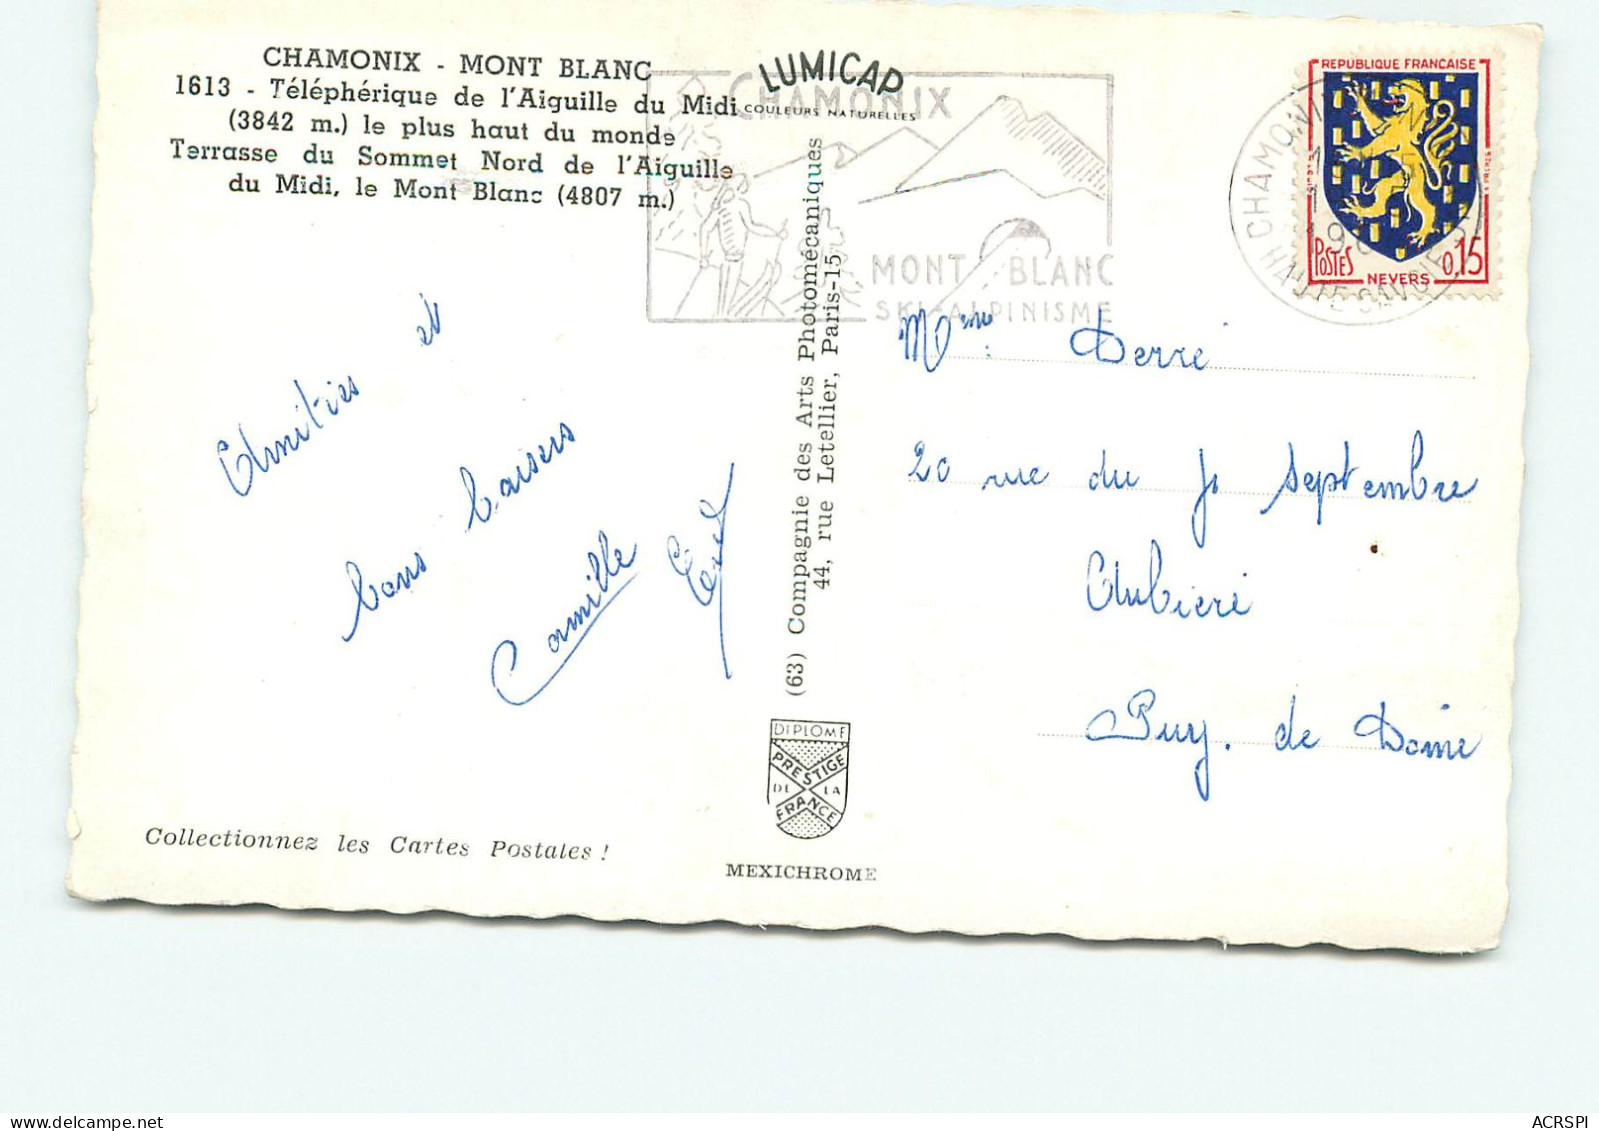 CHAMONIX - MONT BLANC
1613 - Téléphérique de l'Aiguille du Midi
(3842 m.) le plus haut du monde
Terrasse du Sommet Nord de l'Aiguille
du Midi, le Mont Blanc (4807 m.)
LUMICAP
COULEURS NATURELLES
CHAMONIX
MONT BLANC
SKI-ALPINISME
REPUBLIQUE FRANCAISE
POSTES
NEVERS
0,15
CHAMONIX
HAUTE-SAVOIE
Amitiés et
bons baisers
Camille
Mme Derré
20 rue du septembre
Aubière
Puy. de Dôme
(63) Compagnie des Arts Photomécaniques
44, rue Letellier, Paris-15
DIPLOME
PRESTIGE
DE LA
FRANCE
MEXICHROME
Collectionnez les Cartes Postales !
ACRSPI